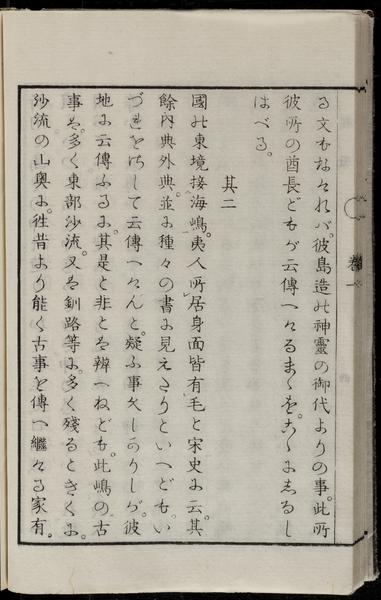 る文もなけれバ。彼島造の神靈の御代よりの事。此所
彼所の酋長どもが云傳へけるまゝを。こゝにしるし
はべる。
其二
國の東境接海嶋。夷人所居身面皆有毛と宋史に云。其
餘内典外典。並に種々の書に見えたりといへども。い
づれをさして云傳へけんと。疑ふ事久しかりしが。彼
地に云傳ふるに。其是と非とを辨へねども。此嶋の古
事は。多く東部沙流。又は釧路等に。多く殘るときくに。
沙流の山奥に。徃昔より能く古事を傳へ繼ける家有。